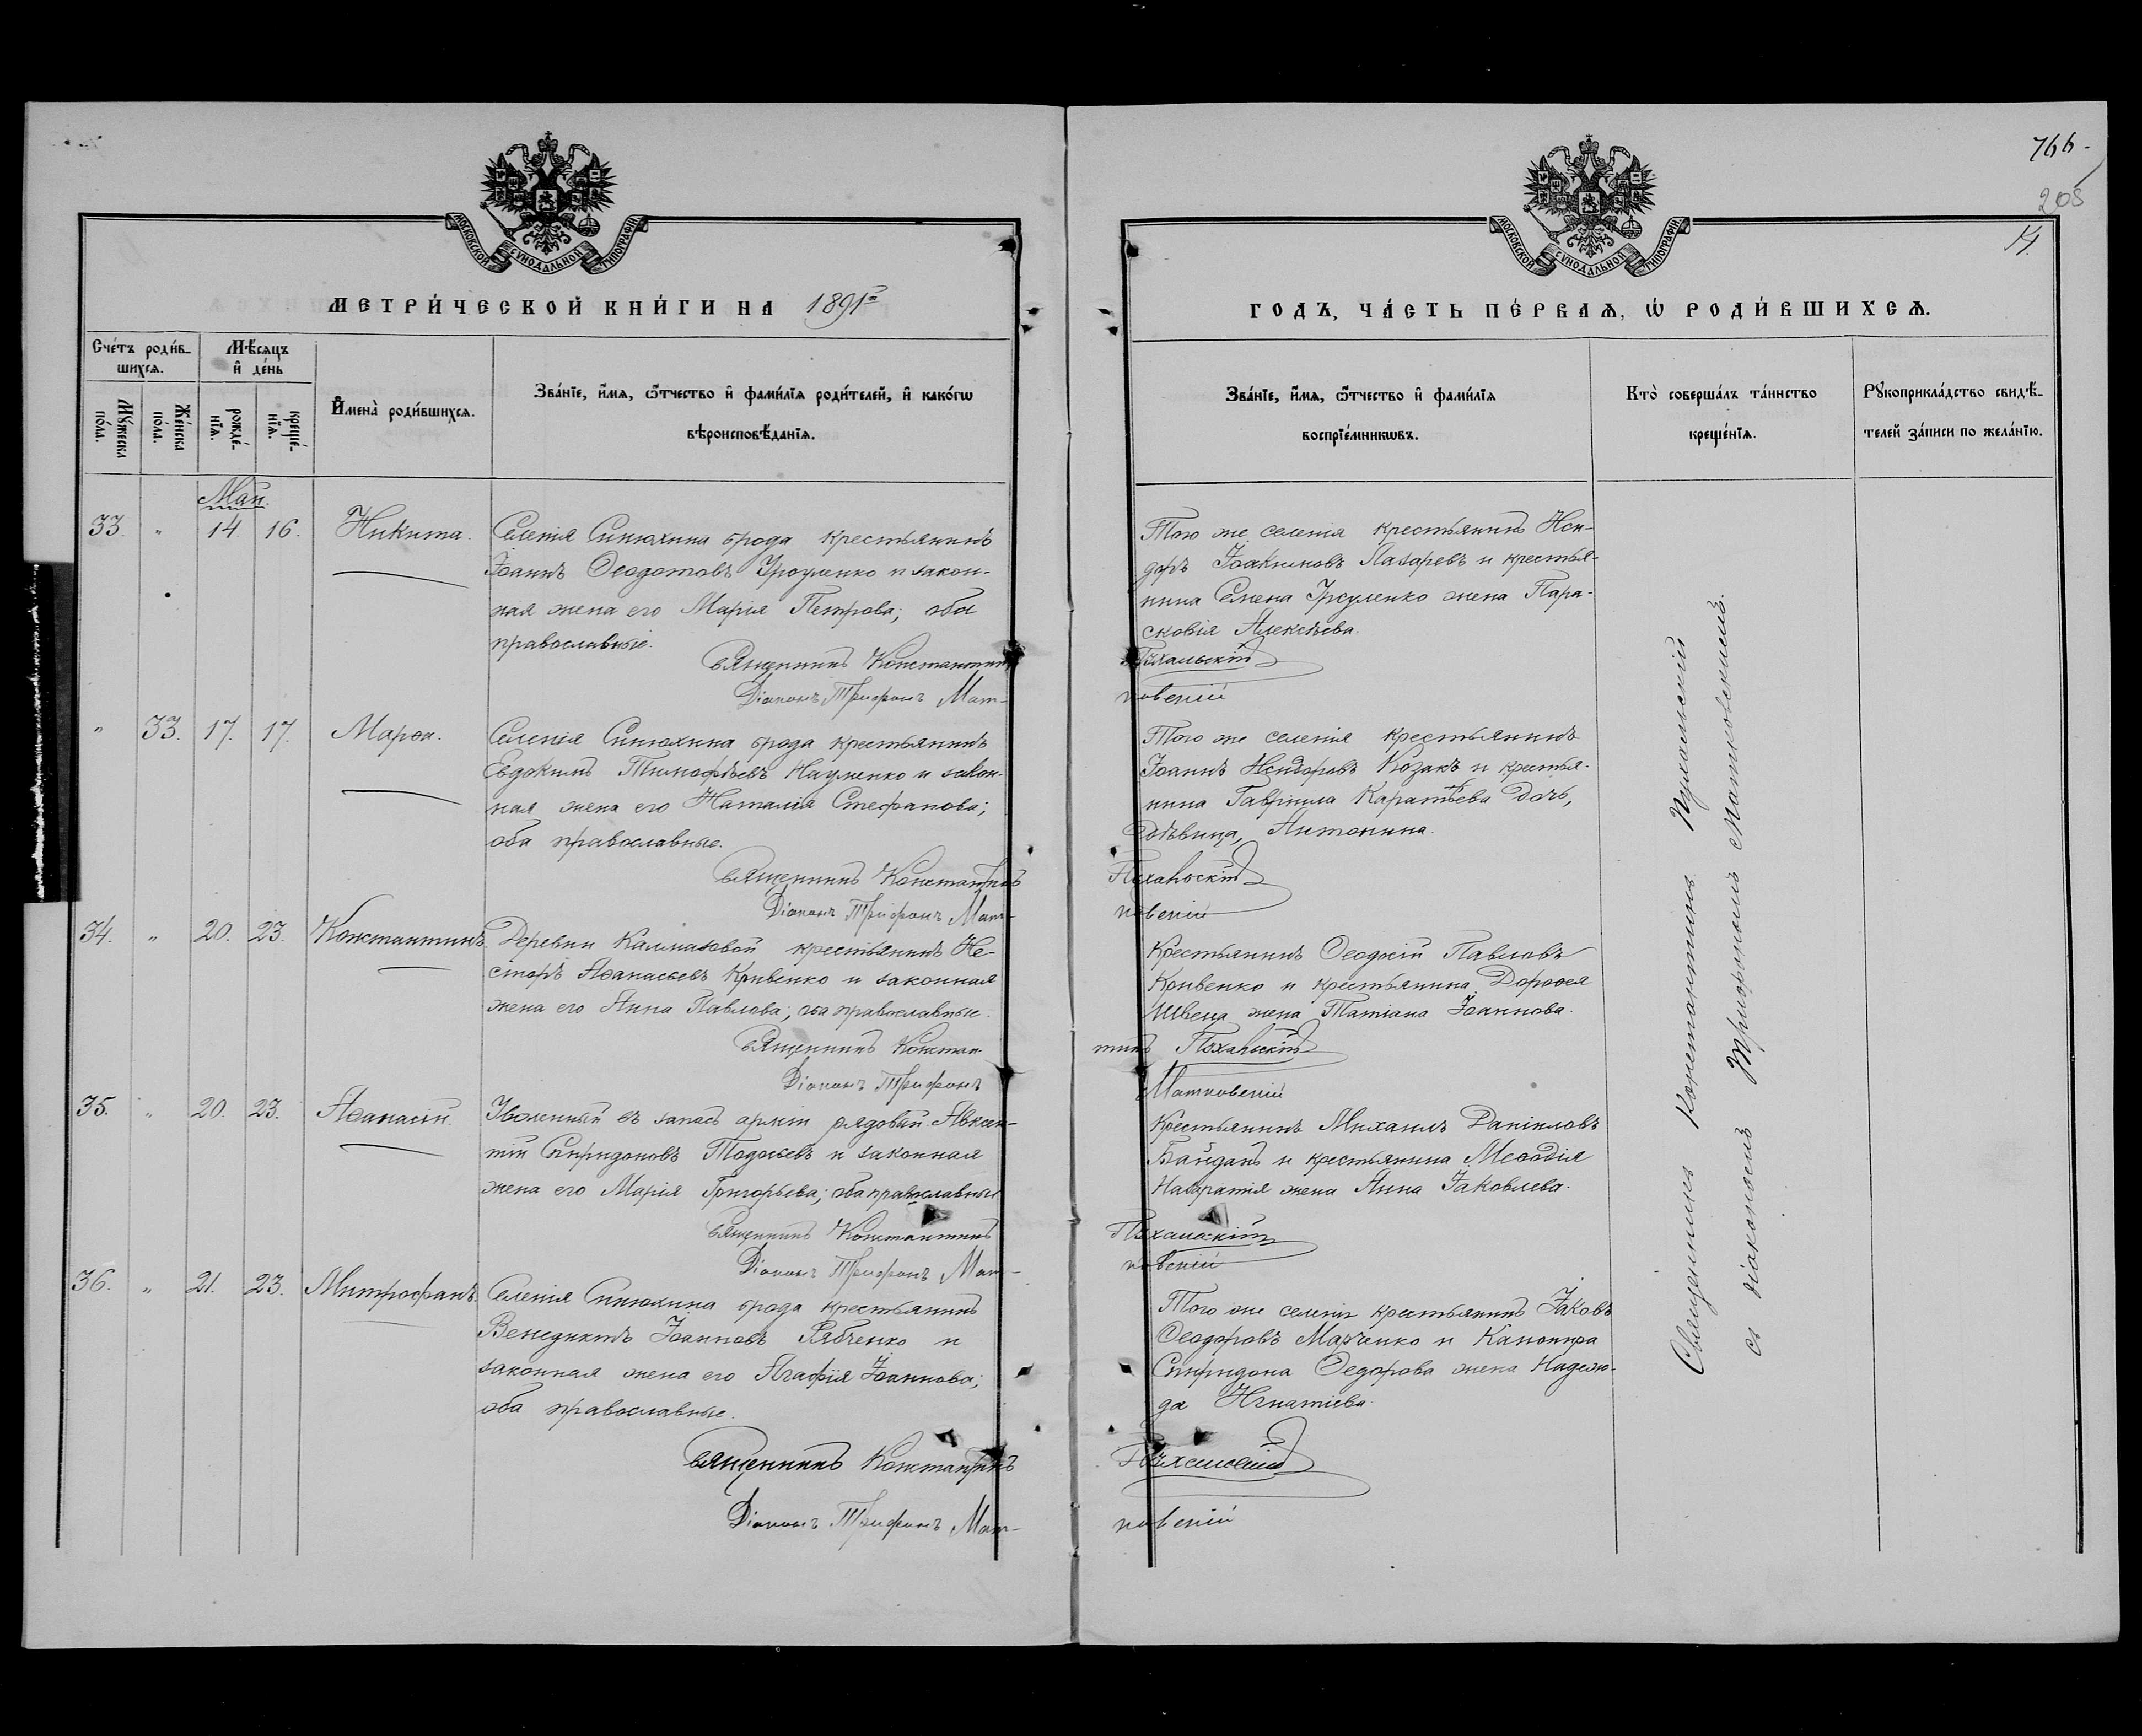 766.
205
МОСКОВСКОЙ СѴНОДАЛЬНОЙ ТИПОГРАФІИ
МОСКОВСКОЙ СѴНОДАЛЬНОЙ ТИПОГРАФІИ
МЕТРИ́ЧЕСКОЙ КНИ́ГИ НА 1891й
ГОДЪ, ЧА́СТЬ ПЕ́РВАѦ, Ѡ҆ РОДИ́ВШИХСѦ.
Сче́тъ роди́в-
шихсѧ.
Мѣ́сѧцъ
и҆ де́нь
Мꙋ́жеска
по́ла.
Же́нска
пола.
рожде́-
нїѧ.
креще́-
нїѧ.
И҆мена̀ роди́вшихсѧ.
Зва́нїе, и҆́мѧ, ѻ҆́тчество и҆ фами́лїѧ роди́телей, и҆ како́гѡ
вѣроисповѣ́данїѧ.
Зва́нїе, и҆́мѧ, ѻ҆́тчество и҆ фами́лїѧ
воспрїе́мникѡвъ.
Кто̀ соверша́лъ та́инство
креще́нїѧ.
Рꙋкоприкла́дство свидѣ́-
телей за́писи по жела́нїю.
Май.
33. " 14. 16. Никита.
Селенія Синюхина брода крестьянинъ
Іоаннъ Ѳеодотовъ Урсуленко и закон-
ная жена его Марія Петрова; оба
православные.
Священникъ Константинъ Пухальскій
Діаконъ Трифонъ Мат-
ковскій
Того же селенія крестьянинъ Иси-
доръ Іоакимовъ Лазаревъ и крестья-
нина Семена Урсуленко жена Пара-
сковія Алексѣева.
" 33. 17. 17. Марѳа.
Селенія Синюхина брода крестьянинъ
Евдокимъ Тимофѣевъ Науменко и закон-
ная жена его Наталія Стефанова;
оба православные.
Священникъ Константинъ Пухальскій
Діаконъ Трифонъ Мат-
ковскій
Того же селенія крестьянинъ
Іоаннъ Исидоровъ Козакъ и крестья-
нина Гавріила Каратѣева дочь,
дѣвица, Антонина.
34. " 20. 23. Константинъ.
Деревни Калмазовой крестьянинъ Не-
сторъ Аѳанасьевъ Кривенко и законная
жена его Анна Павлова; оба православные.
Священникъ Констан-
тинъ Пухальскій
Діаконъ Трифонъ
Матковскій
Крестьянинъ Ѳеодосій Павловъ
Кривенко и крестьянина Дороѳея
Швеца жена Татіана Іоаннова.
35. " 20. 23. Аѳанасій.
Уволенный въ запасъ арміи рядовой Авксен-
тій Спиридоновъ Тодосьевъ и законная
жена его Марія Григорьева; оба православные
Священникъ Константинъ Пухальскій
Діаконъ Трифонъ Мат-
ковскій
Крестьянинъ Михаилъ Даніиловъ
Байданъ и крестьянина Меѳодія
жена Анна Іаковлева.
36. " 21. 23. Митрофанъ.
Селенія Синюхина брода крестьянинъ
Венедиктъ Іоанновъ Рябченко и
законная жена его Агафія Іоаннова;
оба православные.
Священникъ Константинъ Пухальскій
Діаконъ Трифонъ Мат-
ковскій
Того же селенія крестьянинъ Іаковъ
Ѳеодоровъ Марченко и Канонира
Спиридона Ѳедорова жена Надеж-
да Игнатіева.
Священникъ Константинъ Пухальскій
съ діакономъ Трифономъ Матковскимъ.